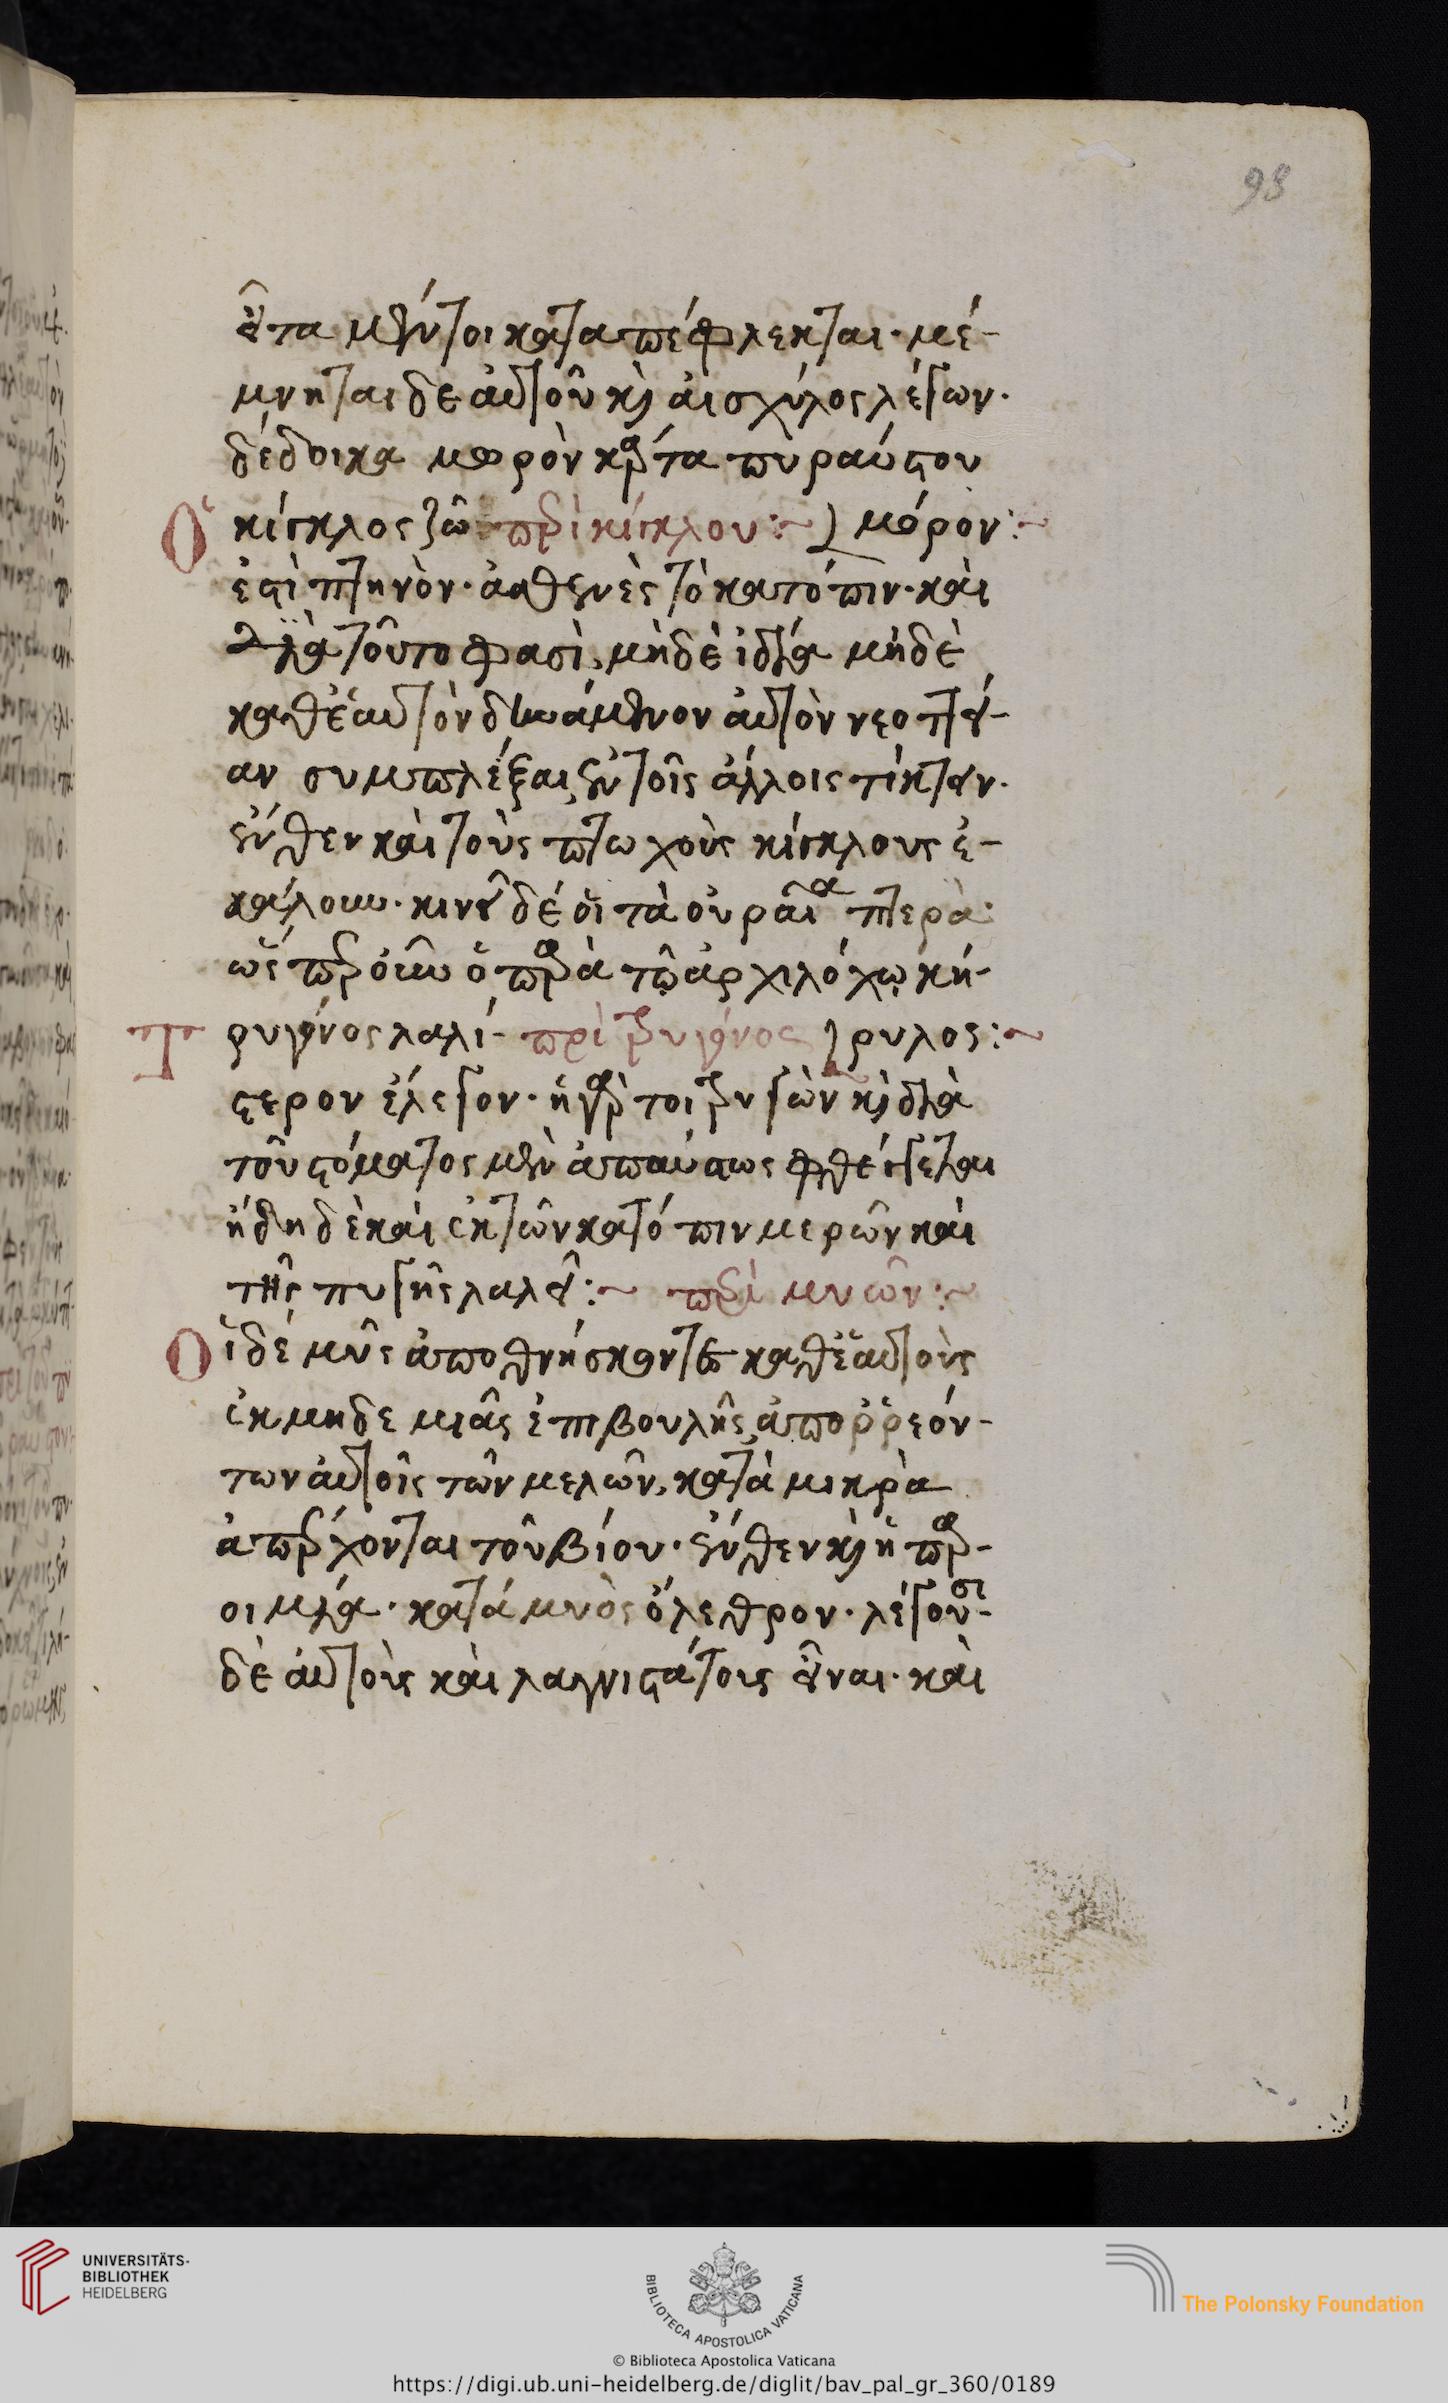 98
εἶτα μέντοι καταπέφλεκται· μέ-
μνηται δὲ αὐτοῦ κ) αἰσχύλος λέγων·
δέδοικα μωρὸν κάρτα πυραύστου
Ὁ κίγκλος ζῶ περὶ κίγκλου:~ ) μόρον:~
ἐστὶ πτηνὸν· ἀσθενὲς τὸ κατόπιν· καὶ
διὰ τοῦτο φασὶ, μὴδὲ ἰδία μήδὲ
καθ' ἑαυτὸν δυνάμενον αὐτὸν νεοττεί-
αν συμπλέξαι, ἐν τοῖς ἄλλοις τίκτειν·
ἔνθεν καὶ τοὺς πτωχοὺς κίγκλους ἐ-
κάλουν· κινεῖ δέ οἱ τὰ οὐραῖα πτερὰ·
ὥσπερ οὖν ὁ παρὰ τῷ ἀρχιλόχῳ κή-
Τρυγόνος λαλί- περὶ τρυγόνος ) ρυλος:~
στερον ἔλεγον· ἡ γάρ τοι τρυγὼν κ) διὰ
τοῦ στόματος μὲν ἀπαύστως φθέγγεται
ἤδη δὲ καὶ ἐκ τῶν κατόπιν μερῶν καὶ
τῆς πυγῆς λαλεῖ:~ περὶ μυῶν:~
Οἱ δέ μῦς ἀποθνήσκοντες καθ' ἑαυτοὺς
ἐκ μηδε μιᾶς ἐπιβουλῆς, ἀποῤῥεόν-
των αὐτοῖς τῶν μελῶν, κατὰ μικρὰ
ἀπέρχονται τοῦ βίου· ἔνθεν κ) ἡ παρ-
οιμία· κατά μυὸς ὄλεθρον· λέγουσι-
δὲ αὐτοὺς καὶ λαγνιστάτους εἶναι· καὶ
UNIVERSITÄTS-
BIBLIOTHEK
HEIDELBERG
BIBLIOTECA APOSTOLICA VATICANA
© Biblioteca Apostolica Vaticana
The Polonsky Foundation
https://digi.ub.uni-heidelberg.de/diglit/bav_pal_gr_360/0189